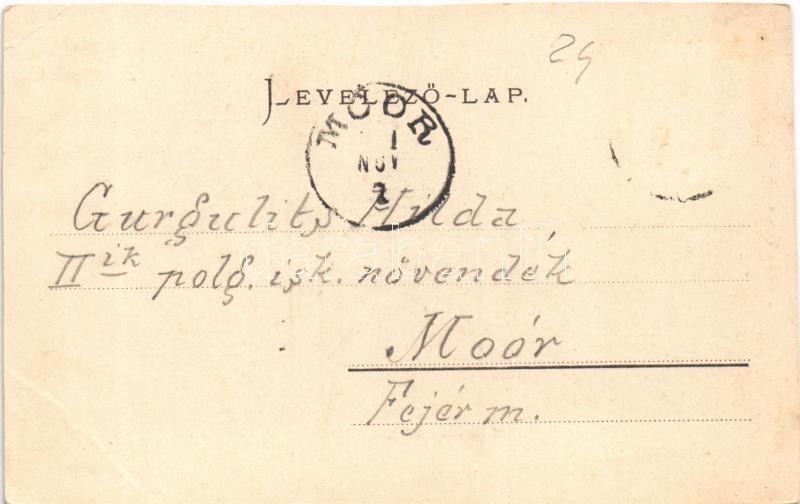 24
LEVELEZŐ-LAP.
MOÓR
1
NOV
Gurgulits Hilda,
II ik polg. isk. növendék
Moór
Fejér m.